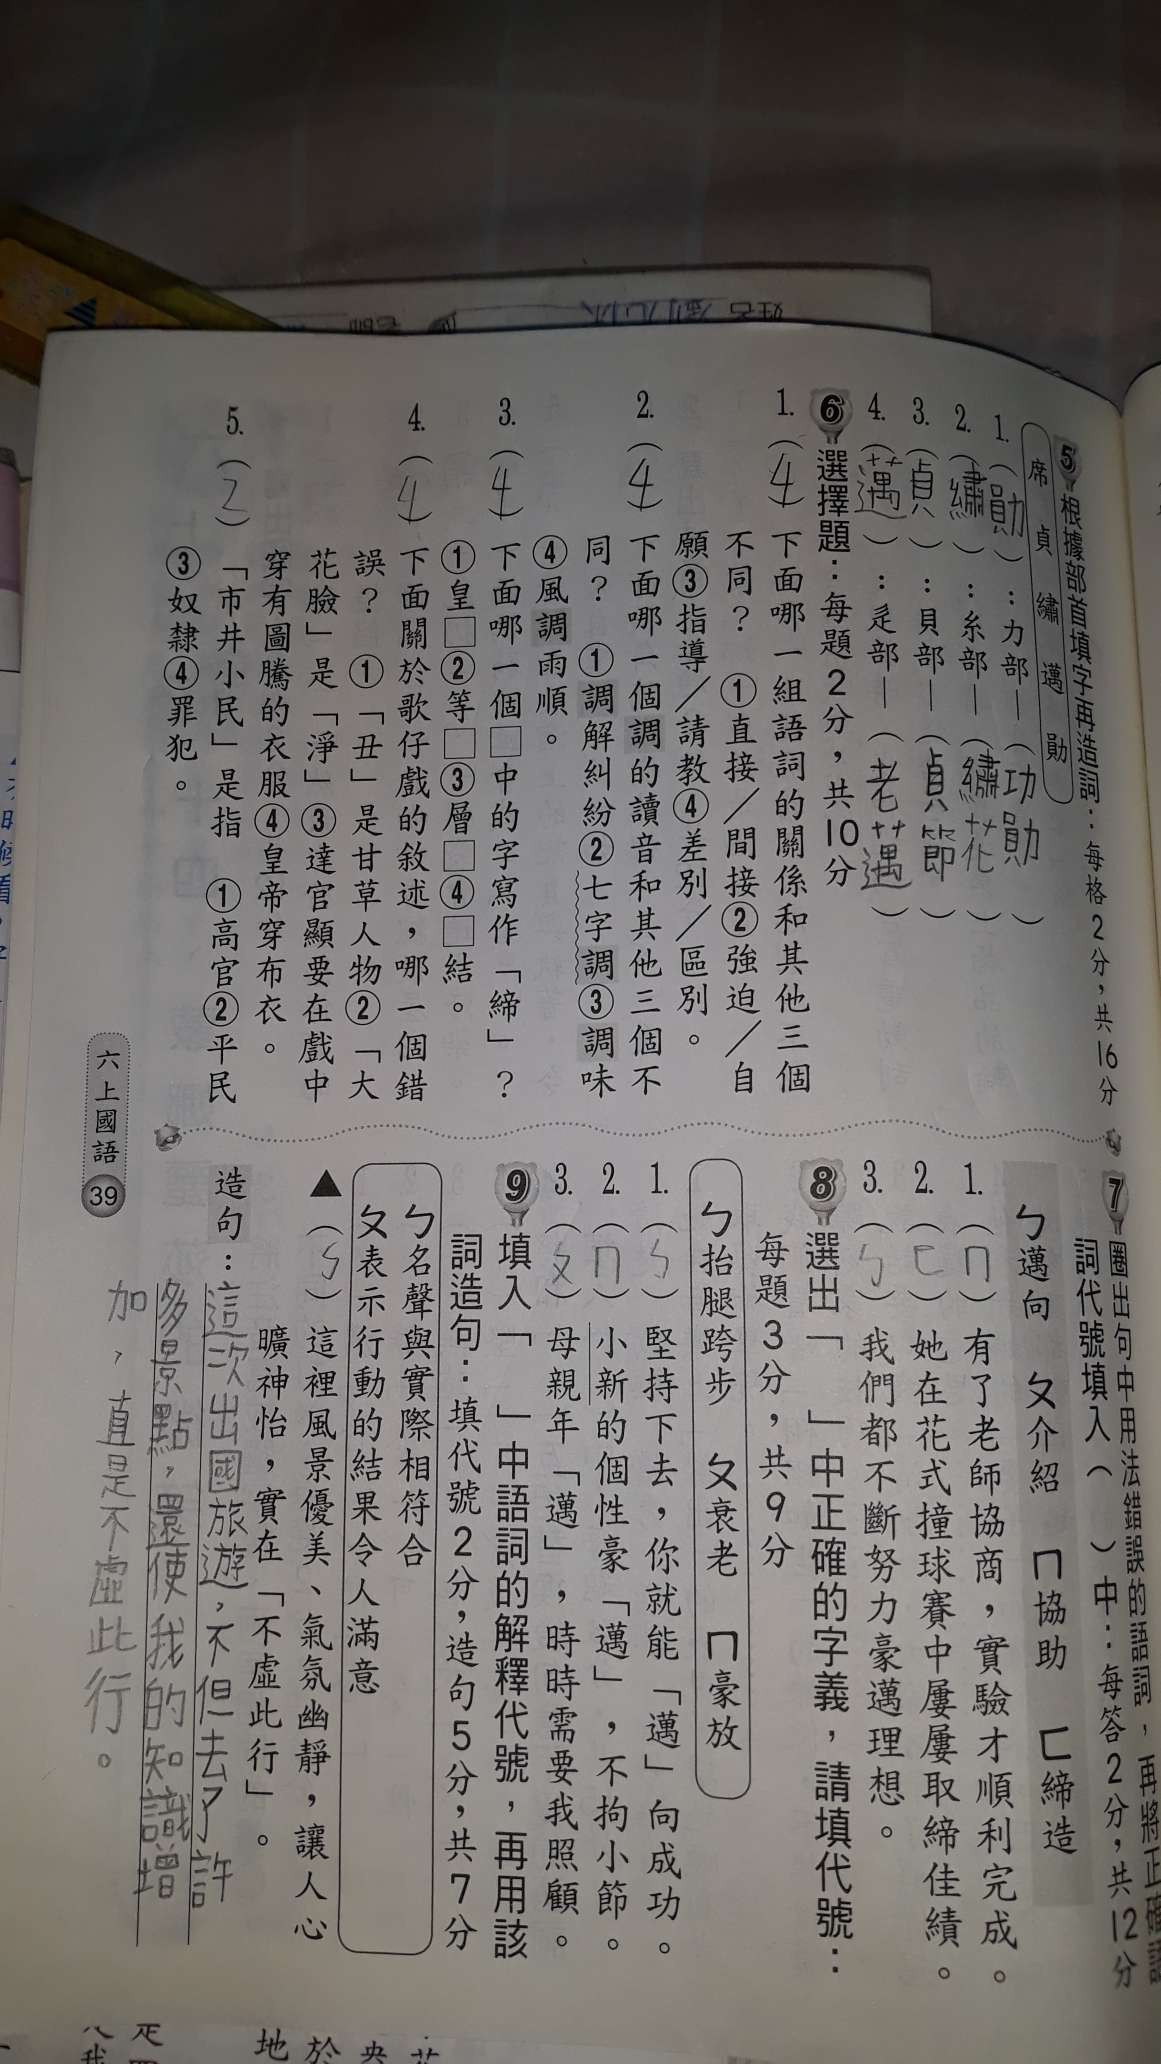 姓名
老師
5 根據部首填字再造詞：每格2分，共16分
席 貞 繡 邁 勛
1.（勛）：力部—（功勛）
2.（繡）：糸部—（繡花）
3.（貞）：貝部—（貞節）
4.（邁）：辵部—（老邁）
6 選擇題：每題2分，共10分
1.（4）下面哪一組語詞的關係和其他三個
不同？ ①直接／間接②強迫／自
願③指導／請教④差別／區別。
2.（4）下面哪一個調的讀音和其他三個不
同？ ①調解糾紛②七字調③調味
④風調雨順。
3.（4）下面哪一個□中的字寫作「締」？
①皇□②等□③層□④□結。
4.（4）下面關於歌仔戲的敘述，哪一個錯
誤？ ①「丑」是甘草人物②「大
花臉」是「淨」③達官顯要在戲中
穿有圖騰的衣服④皇帝穿布衣。
5.（2）「市井小民」是指 ①高官②平民
③奴隸④罪犯。
7 圈出句中用法錯誤的語詞，再將正確語
詞代號填入（ ）中：每答2分，共12分
ㄅ邁向 ㄆ介紹 ㄇ協助 ㄈ締造
1.（ㄇ）有了老師協商，實驗才順利完成。
2.（ㄈ）她在花式撞球賽中屢屢取締佳績。
3.（ㄅ）我們都不斷努力豪邁理想。
8 選出「 」中正確的字義，請填代號：
每題3分，共9分
ㄅ抬腿跨步 ㄆ衰老 ㄇ豪放
1.（ㄅ）堅持下去，你就能「邁」向成功。
2.（ㄇ）小新的個性豪「邁」，不拘小節。
3.（ㄆ）母親年「邁」，時時需要我照顧。
9 填入「 」中語詞的解釋代號，再用該
詞造句：填代號2分，造句5分，共7分
ㄅ名聲與實際相符合
ㄆ表示行動的結果令人滿意
▲（ㄅ）這裡風景優美、氣氛幽靜，讓人心
曠神怡，實在「不虛此行」。
造句：這次出國旅遊，不但去了許
多景點，還使我的知識增
加，直是不虛此行。
六上國語 39